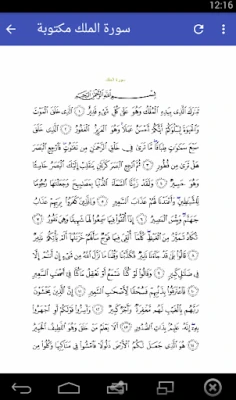 12:16
سورة الملك مكتوبة
سورة الملك
بِسْمِ اللَّهِ الرَّحْمَٰنِ الرَّحِيمِ
تَبَارَكَ الَّذِي بِيَدِهِ الْمُلْكُ وَهُوَ عَلَىٰ كُلِّ شَيْءٍ قَدِيرٌ ﴿١﴾ الَّذِي خَلَقَ الْمَوْتَ
وَالْحَيَاةَ لِيَبْلُوَكُمْ أَيُّكُمْ أَحْسَنُ عَمَلًا وَهُوَ الْعَزِيزُ الْغَفُورُ ﴿٢﴾ الَّذِي خَلَقَ
سَبْعَ سَمَاوَاتٍ طِبَاقًا مَّا تَرَىٰ فِي خَلْقِ الرَّحْمَٰنِ مِن تَفَاوُتٍ فَارْجِعِ الْبَصَرَ
هَلْ تَرَىٰ مِن فُطُورٍ ﴿٣﴾ ثُمَّ ارْجِعِ الْبَصَرَ كَرَّتَيْنِ يَنقَلِبْ إِلَيْكَ الْبَصَرُ خَاسِئًا
وَهُوَ حَسِيرٌ ﴿٤﴾ وَلَقَدْ زَيَّنَّا السَّمَاءَ الدُّنْيَا بِمَصَابِيحَ وَجَعَلْنَاهَا رُجُومًا
لِّلشَّيَاطِينِ وَأَعْتَدْنَا لَهُمْ عَذَابَ السَّعِيرِ ﴿٥﴾ وَلِلَّذِينَ كَفَرُوا بِرَبِّهِمْ عَذَابُ
جَهَنَّمَ وَبِئْسَ الْمَصِيرُ ﴿٦﴾ إِذَا أُلْقُوا فِيهَا سَمِعُوا لَهَا شَهِيقًا وَهِيَ تَفُورُ ﴿٧﴾
تَكَادُ تَمَيَّزُ مِنَ الْغَيْظِ كُلَّمَا أُلْقِيَ فِيهَا فَوْجٌ سَأَلَهُمْ خَزَنَتُهَا أَلَمْ يَأْتِكُمْ نَذِيرٌ
﴿٨﴾ قَالُوا بَلَىٰ قَدْ جَاءَنَا نَذِيرٌ فَكَذَّبْنَا وَقُلْنَا مَا نَزَّلَ اللَّهُ مِن شَيْءٍ إِنْ أَنتُمْ إِلَّا
فِي ضَلَالٍ كَبِيرٍ ﴿٩﴾ وَقَالُوا لَوْ كُنَّا نَسْمَعُ أَوْ نَعْقِلُ مَا كُنَّا فِي أَصْحَابِ السَّعِيرِ
﴿١٠﴾ فَاعْتَرَفُوا بِذَنبِهِمْ فَسُحْقًا لِّأَصْحَابِ السَّعِيرِ ﴿١١﴾ إِنَّ الَّذِينَ يَخْشَوْنَ
رَبَّهُم بِالْغَيْبِ لَهُم مَّغْفِرَةٌ وَأَجْرٌ كَبِيرٌ ﴿١٢﴾ وَأَسِرُّوا قَوْلَكُمْ أَوِ اجْهَرُوا
بِهِ إِنَّهُ عَلِيمٌ بِذَاتِ الصُّدُورِ ﴿١٣﴾ أَلَا يَعْلَمُ مَنْ خَلَقَ وَهُوَ اللَّطِيفُ الْخَبِيرُ
﴿١٤﴾ هُوَ الَّذِي جَعَلَ لَكُمُ الْأَرْضَ ذَلُولًا فَامْشُوا فِي مَنَاكِبِهَا وَكُلُوا